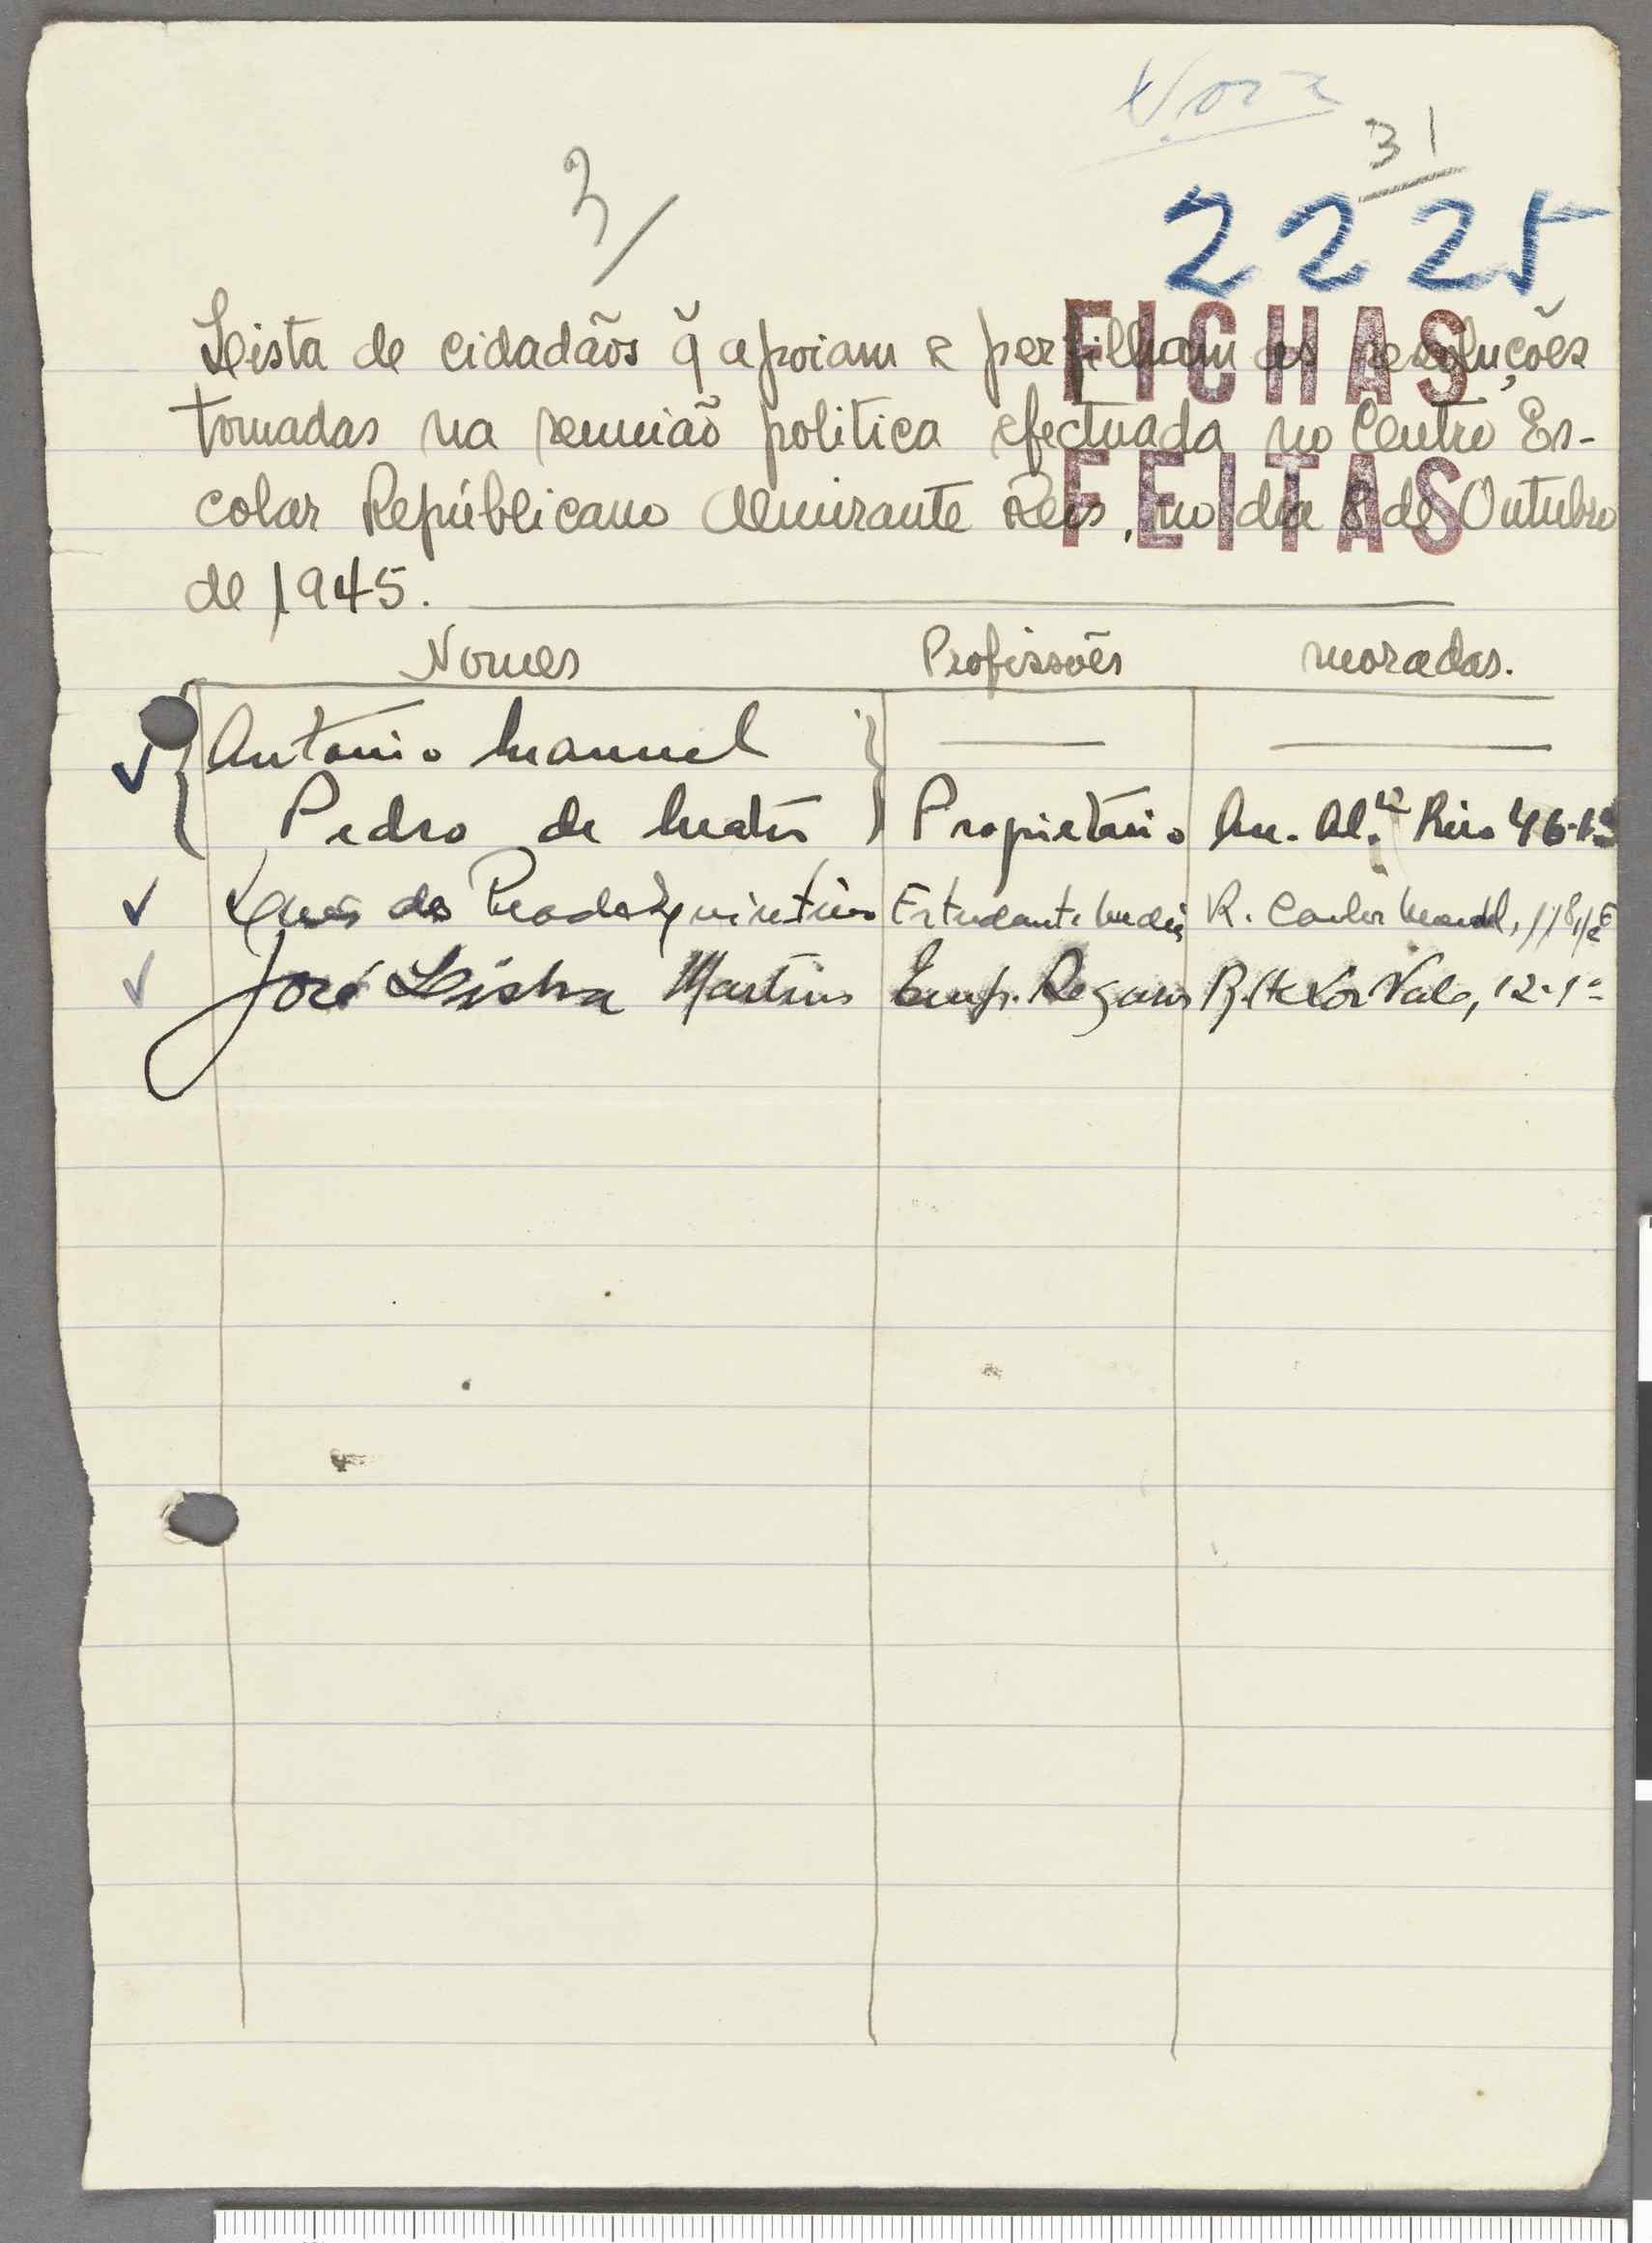 31
3
2225
FICHAS
FEITAS
Lista de cidadãos q̃ apoiam e perfilham as resoluções
tomadas na reunião politica efectuada no Centro Es-
colar Repúblicano Almirante Reis, no dia 8 de Outubro
de 1945.
Nomes Profissões moradas.
Antonio Manuel
Pedro de Matos Proprietario Av. Al. Reis 46-1º
do Prado Quintino Estudante R. Carlos Mardel, 118, 1º E
José Lisboa Martins Emp. Seguros R. Heitor Vale, 12-1º